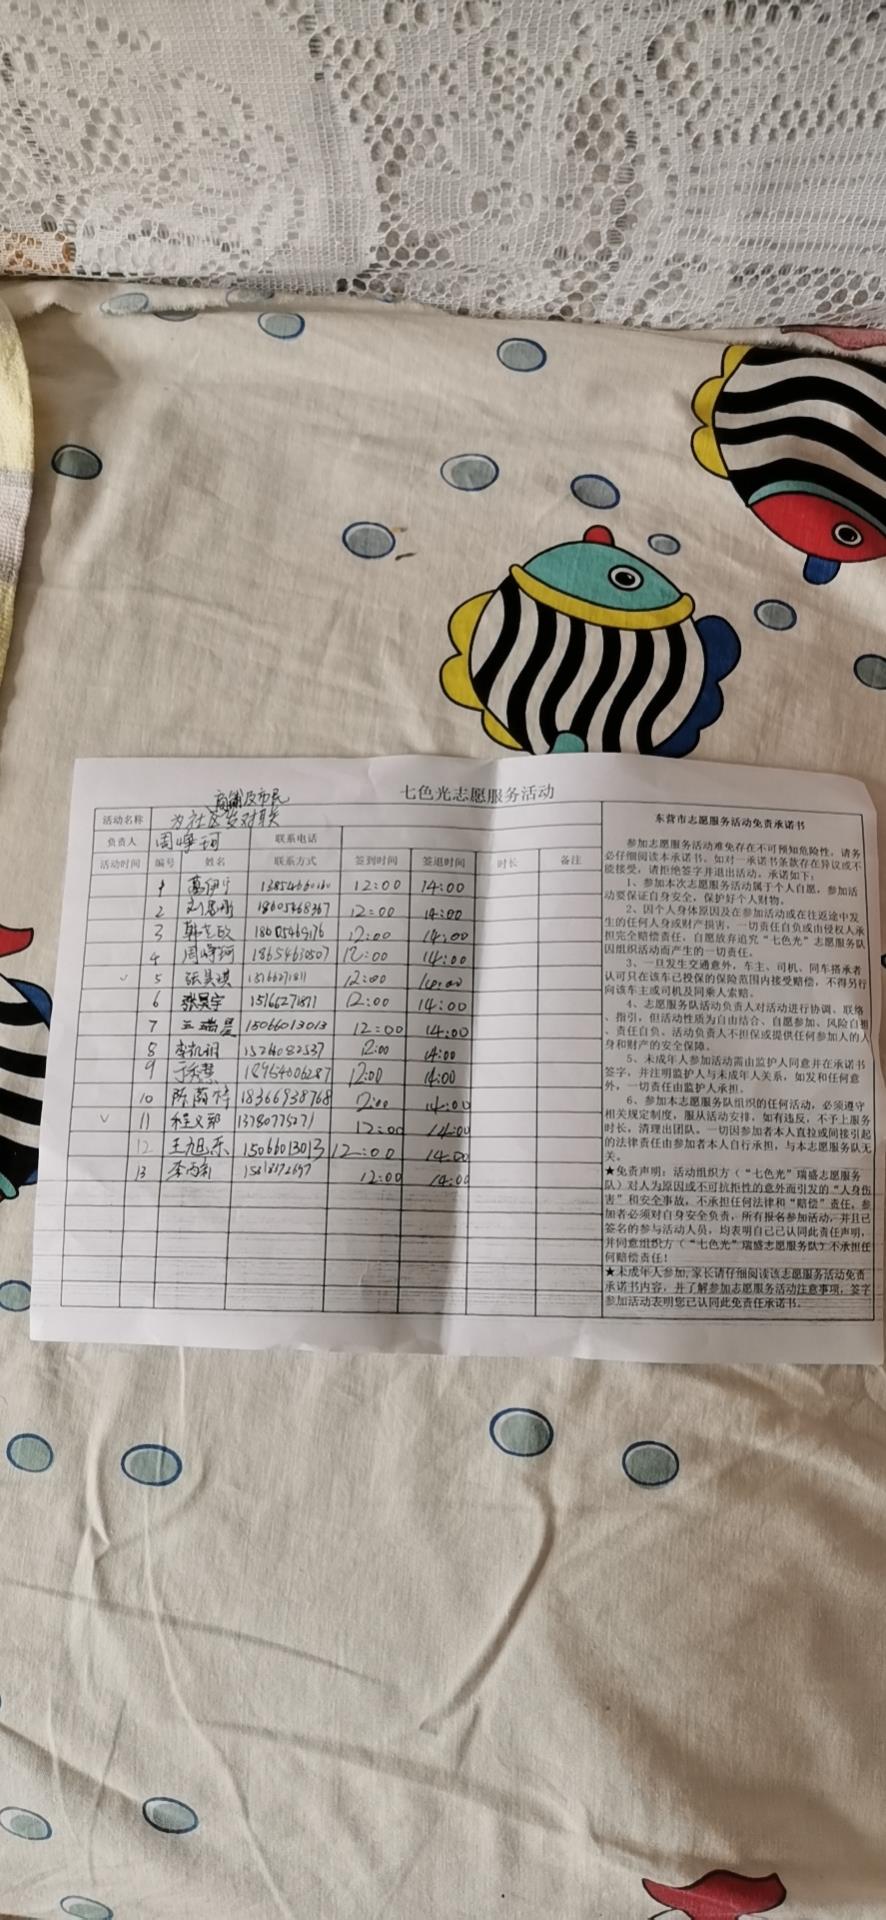 七色光志愿服务活动
商铺及市民
活动名称 为社区发对联
负责人 周峰珂 联系电话
活动时间 编号 姓名 联系方式 签到时间 签退时间 时长 备注
1 12:00 14:00
2 18605468367 12:00 14:00
3 18605469176 12:00 14:00
4 周峰珂 18654630507 12:00 14:00
5 张昊祺 12:00 14:00
6 张昊宇 15166271811 12:00 14:00
7 王瑞星 15066013013 12:00 14:00
8 李凯润 12:00 14:00
9 于秀慧 18954006287 12:00 14:00
10 陈荫梓 18366938768 12:00 14:00
11 程义郭 13780775271 12:00 14:00
12 王旭东 15066013013 12:00 14:00
13 李丙利 12:00 14:00
东营市志愿服务活动免责承诺书
参加志愿服务活动难免存在不可预知危险性，请务
必仔细阅读本承诺书。如对一承诺书条款存在异议或不
能接受，请拒绝签字并退出活动。承诺如下：
1、参加本次志愿服务活动属于个人自愿，参加活
动要保证自身安全，保护好个人财物。
2、因个人身体原因及在参加活动或在往返途中发
生的任何人身或财产损害，一切责任自负或由侵权人承
担完全赔偿责任，自愿放弃追究“七色光”志愿服务队
因组织活动而产生的一切责任。
3、一旦发生交通意外，车主、司机、同车搭承者
认可只在该车已投保的保险范围内接受赔偿，不得另行
向该车主或司机及同乘人索赔。
4、志愿服务队活动负责人对活动进行协调、联络
、指引，但活动性质为自由结合、自愿参加、风险自担
、责任自负、活动负责人不担保或提供任何参加人的人
身和财产的安全保障。
5、未成年人参加活动需由监护人同意并在承诺书
签字，并注明监护人与未成年人关系，如发和任何意
外，一切责任由监护人承担。
6、参加本志愿服务队组织的任何活动，必须遵守
相关规定制度，服从活动安排，如有违反，不予上服务
时长，清理出团队。一切因参加者本人直接或间接引起
的法律责任由参加者本人自行承担，与本志愿服务队无
关。
★免责声明：活动组织方（“七色光”瑞盛志愿服务
队）对人为原因或不可抗拒性的意外而引发的“人身伤
害”和安全事故，不承担任何法律和“赔偿”责任，参
加者必须对自身安全负责，所有报名参加活动，并且已
签名的参与活动人员，均表明自己已认同此责任声明，
并同意组织方（“七色光”瑞盛志愿服务队）不承担任
何赔偿责任！
★未成年人参加，家长请仔细阅读该志愿服务活动免责
承诺书内容，并了解参加志愿服务活动注意事项，签字
参加活动表明您已认同此免责任承诺书。